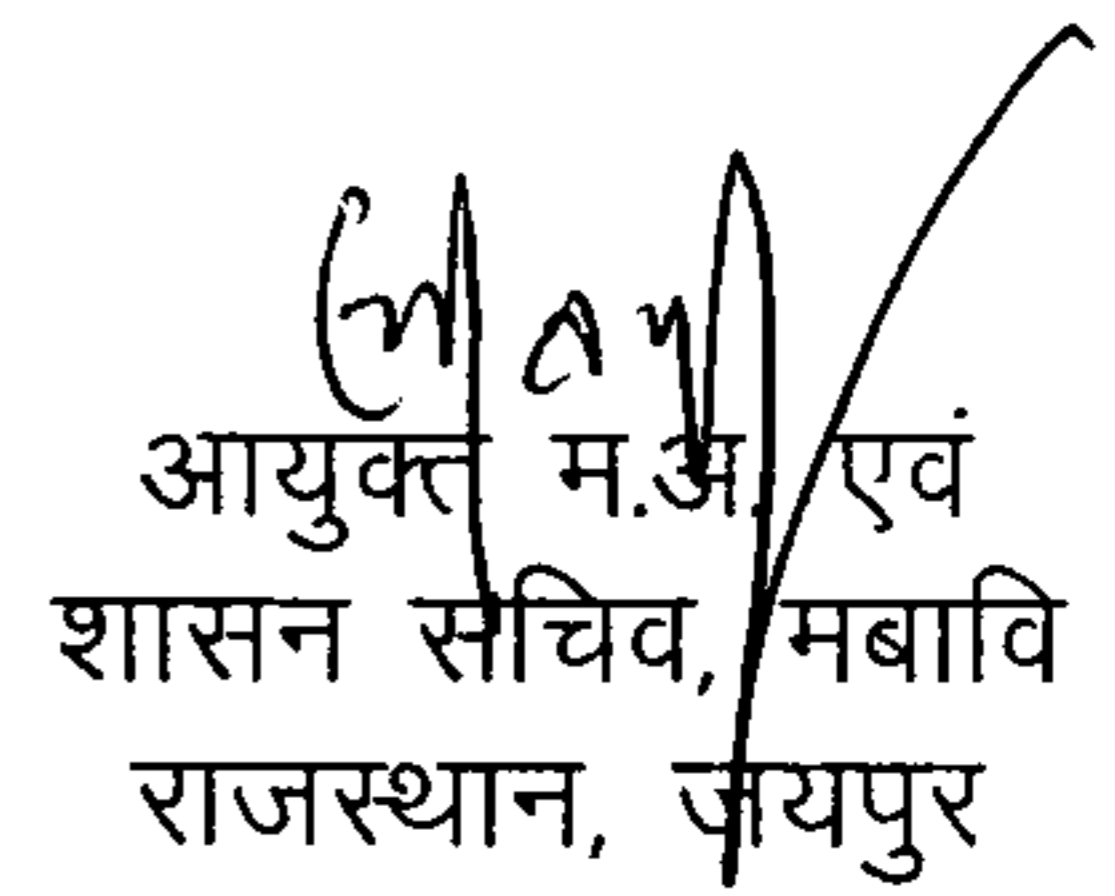 आयुक्त म.अ. एवं
शासन सचिव, मबावि
राजस्थान, जयपुर